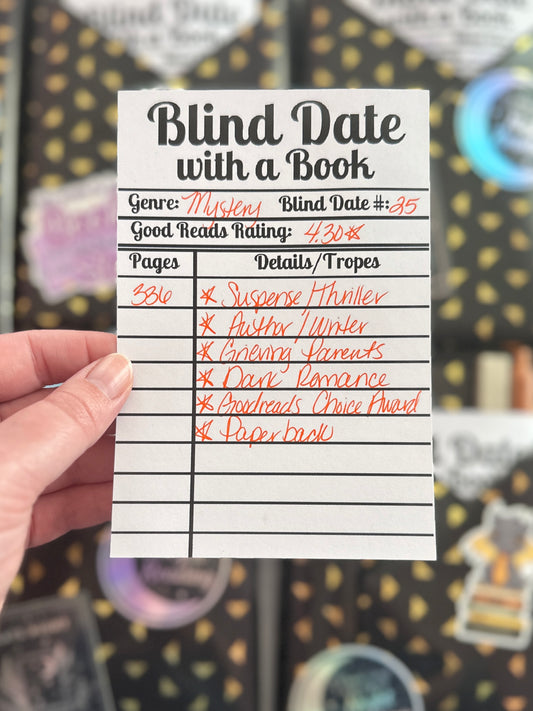 Blind Date
with a Book
Genre: Mystery Blind Date #: 25
Good Reads Rating: 4.30☆
Pages Details/Tropes
336 ☆ Suspense/Thriller
☆ Author/Writer
☆ Grieving Parents
☆ Dark Romance
☆ Goodreads Choice Award
☆ Paperback
with a Book